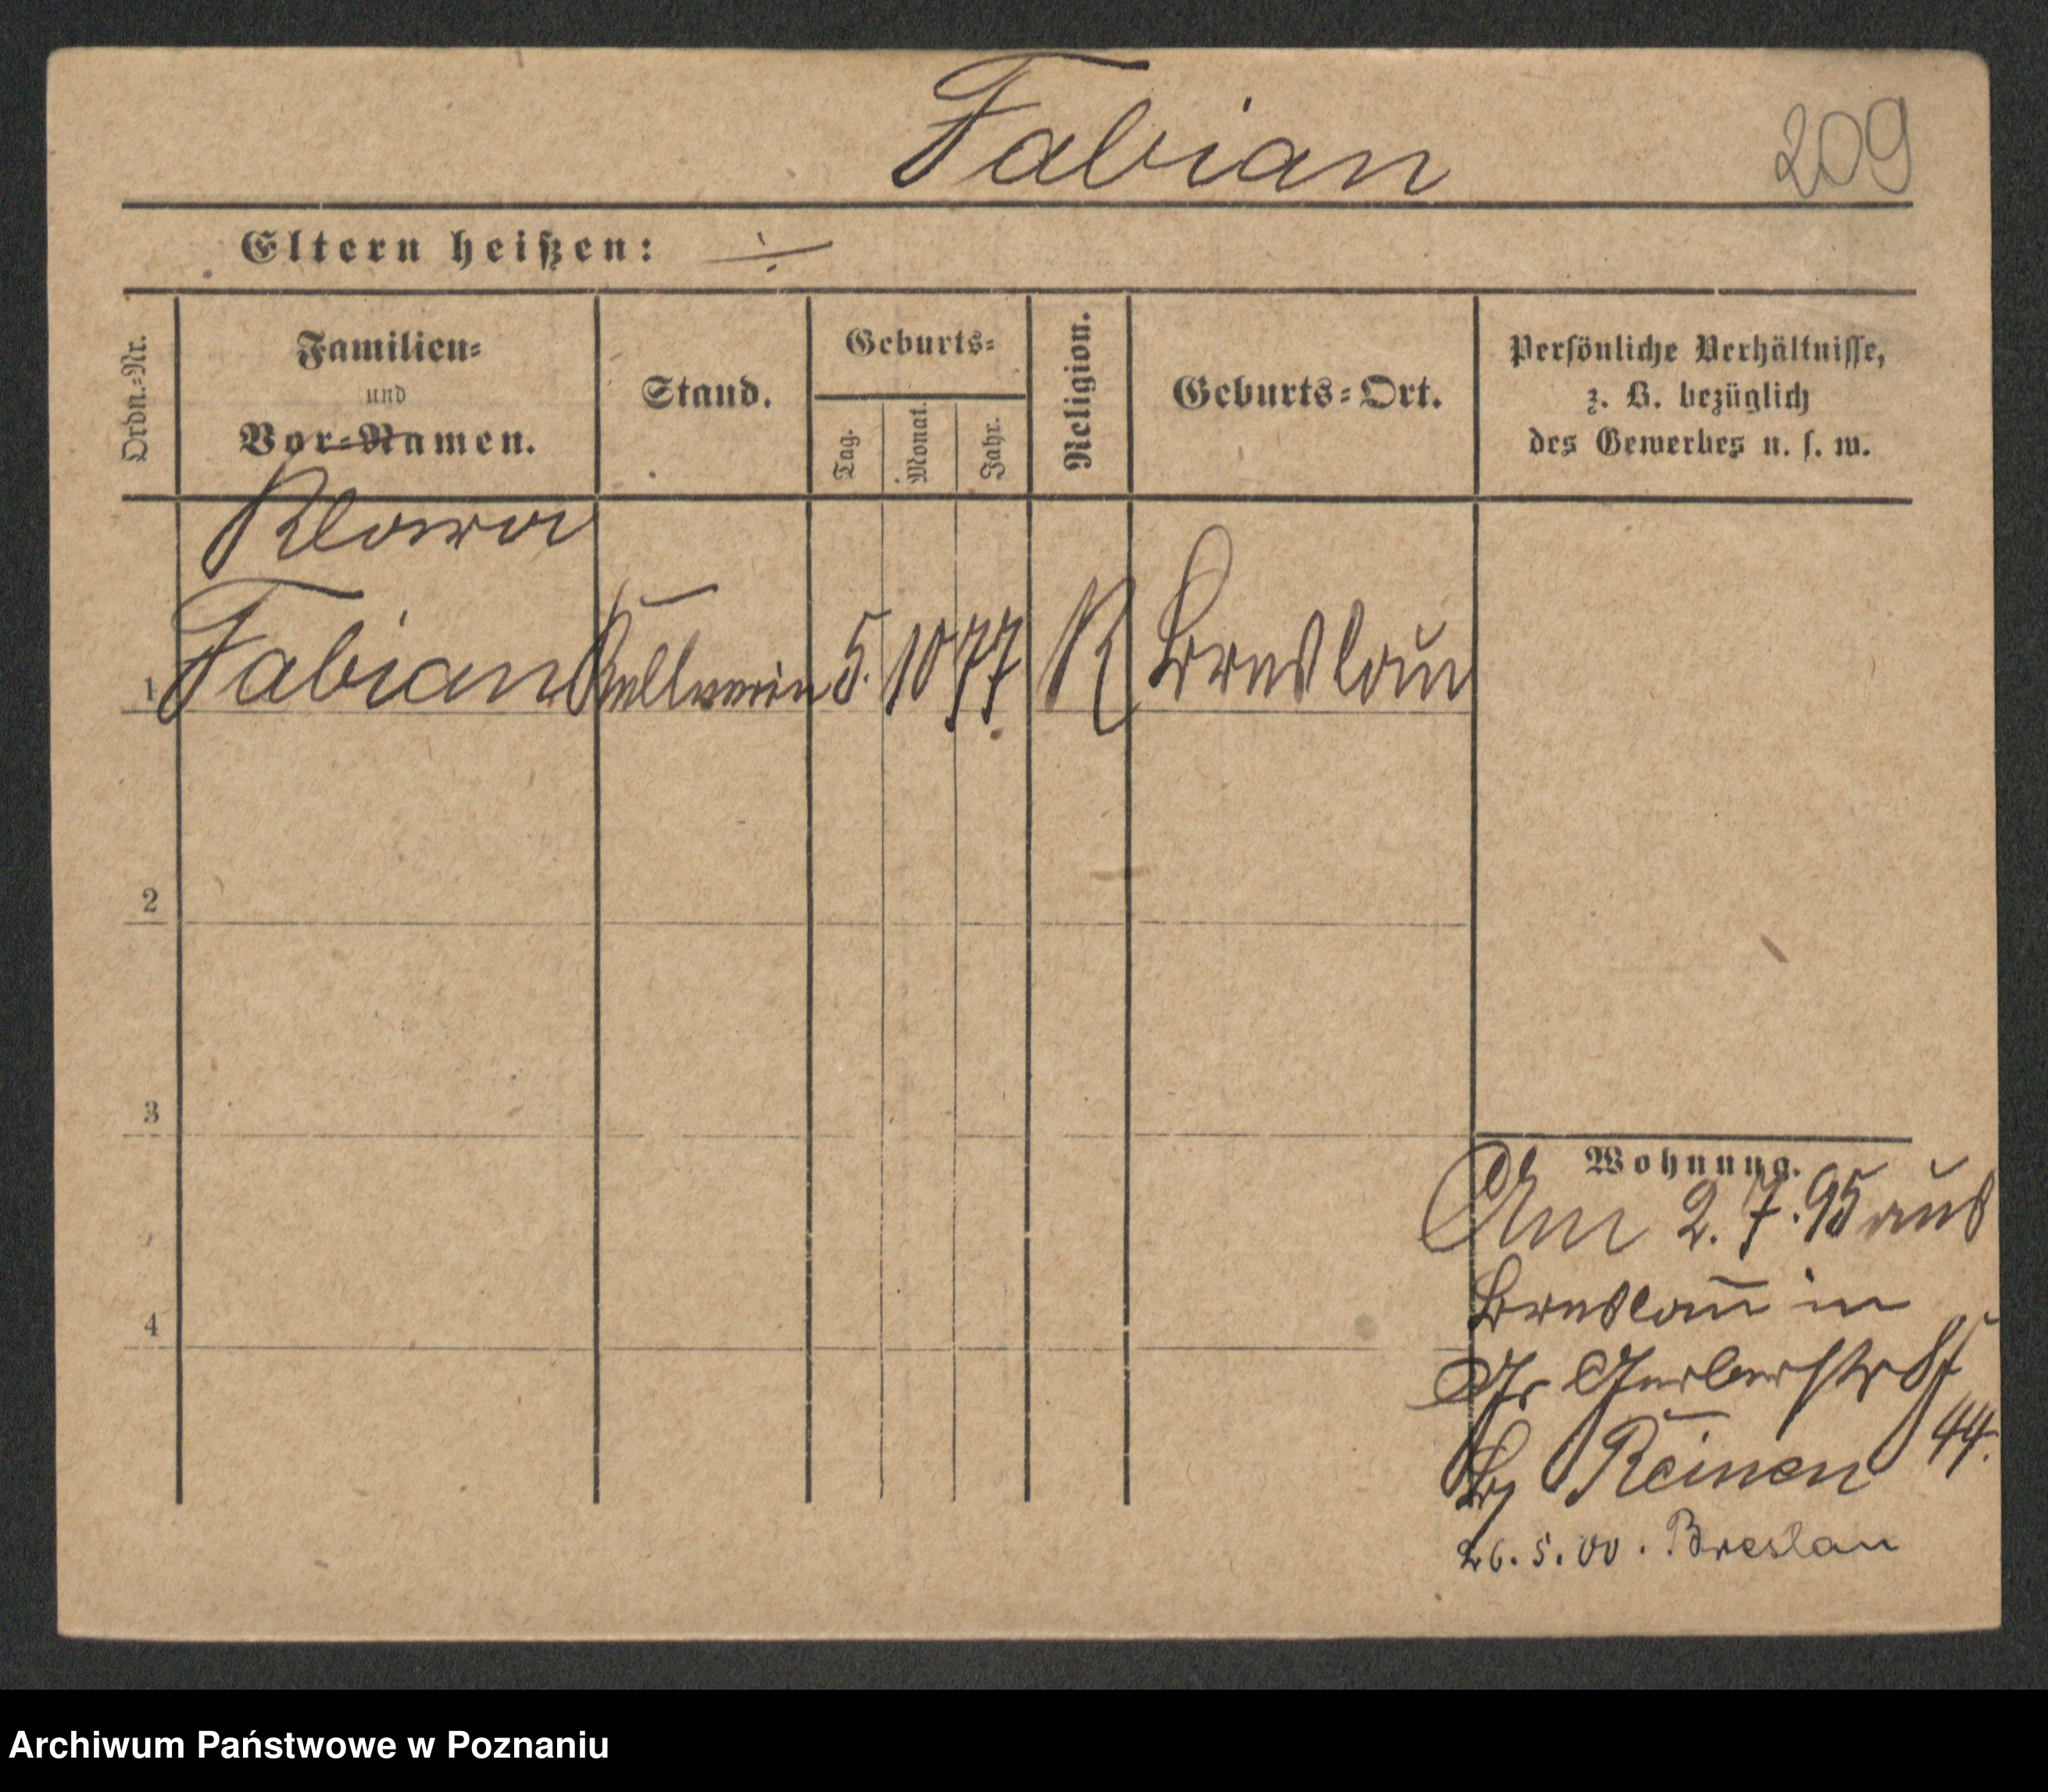 Fabian
209
Eltern heißen: ÷
Ordn.-Nr.
Familien-
und
Vor-Namen.
Stand.
Geburts-
Tag.
Monat.
Jahr.
Religion.
Geburts-Ort.
Persönliche Verhältnisse,
z. B. bezüglich
des Gewerbes u. s. w.
Klara
1 Fabian Kellnerin 5. 10 77 K Breslau
2
3
4
Wohnung.
Am 2. 7. 95 aus
Breslau in
Gr Gerberstr
44.
Reinen
26. 5. 00. Breslau
Archiwum Państwowe w Poznaniu